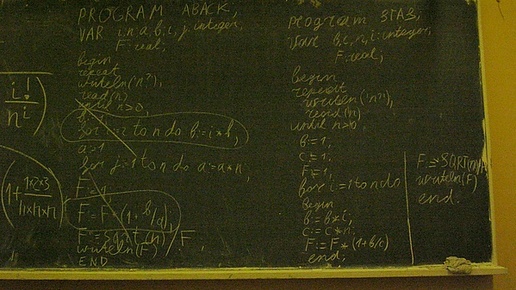 PROGRAM ABACK;
VAR i,n,a,b,i,j:integer;
F:real;
begin
repeat
writeln('n?');
read(n)
until n>0;
b=1
for i=1 to n do b:=i*b;
a=1
for j=1 to n do a:=a*n;
F=1
F:=F*(1+b/a);
F:=sqrt(n)/F;
writeln(F)
END
i!
n^i
1+ 1x2x3
n×n×n
program STAB;
var b,c,n,i:integer;
F:real;
begin
repeat
writeln('n?');
read(n);
until n>0;
b:=1;
c:=1;
F:=1;
for i:=1 to n do
Begin
b:=b*i;
c:=c*n;
F:=F*(1+b/c)
end;
F:=SQRT(n)/F
writeln(F)
end.